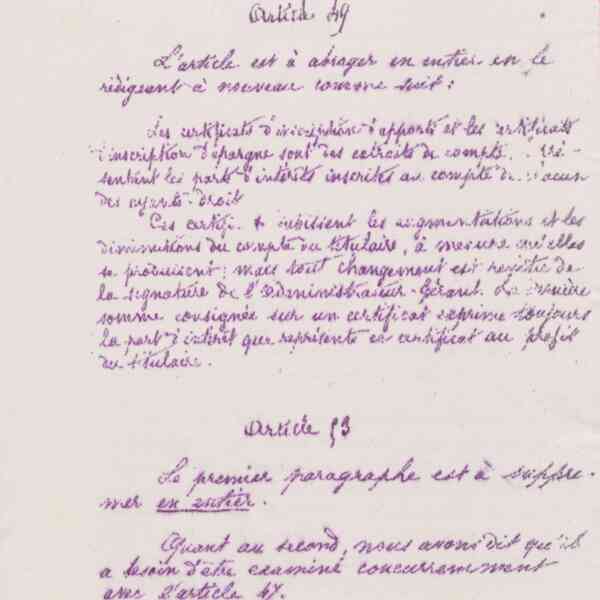 Article 49
L'article est à abroger en entier en le
rédigeant à nouveau comme suit :
Les certificats d'inscription d'apports et les certificats
d'inscription d'épargne sont des extraits de compte
sentant les part d'intérêts inscrites au compte de chacun
des ayants-droit
Ces certifi. indiquent les augmentations et les
diminutions du compte du titulaire, à mesure qu'elles
se produisent ; mais tout changement est revêtu de
la signature de l'Administrateur-Gérant. La dernière
somme consignée sur un certificat exprime toujours
la part d'intérêt que représente ce certificat au profit
du titulaire.
Article 53
Le premier paragraphe est à suppri-
mer en entier.
Quant au second, nous avons dit qu'il
a besoin d'être examiné concurremment
avec l'article 47.